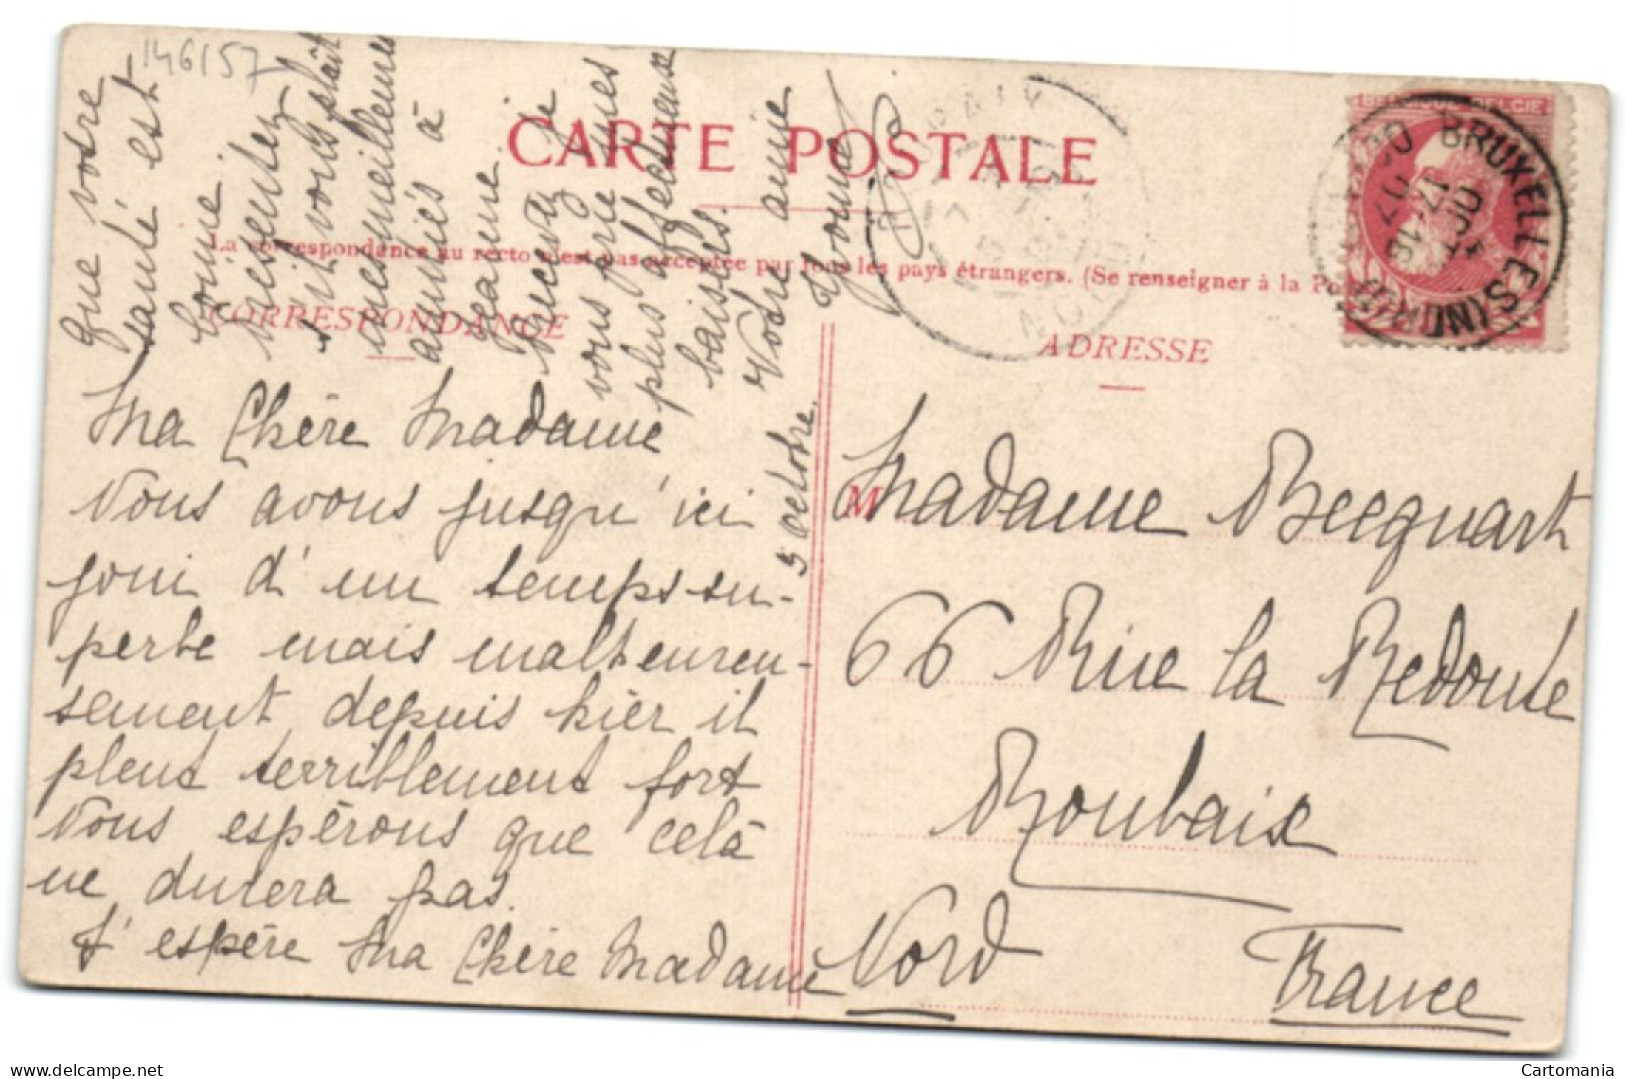 146157
CARTE POSTALE
La correspondance au recto n'est pas acceptée par tous les pays étrangers. (Se renseigner à la Po
CORRESPONDANCE
ADRESSE
BELGIQUE BELGIË
BRUXELLES (NORD)
Ma Chère Madame
Nous avons jusqu'ici
joui d'un temps su-
perbe mais malheureu-
sement depuis hier il
pleut terriblement fort
Nous espérons que celà
ne durera pas.
J'espère Ma Chère Madame
que votre
santé est
bonne.
présentez
s'il vous plaît
mes meilleures
amitiés à
Jeanne.
Je
vous prie mes
plus affectueux
baisers.
Votre amie
Yvonne
5 Octobre.
M
Madame Becquart
66 Rue la Redoute
Roubaix
Nord
France
Cartomania